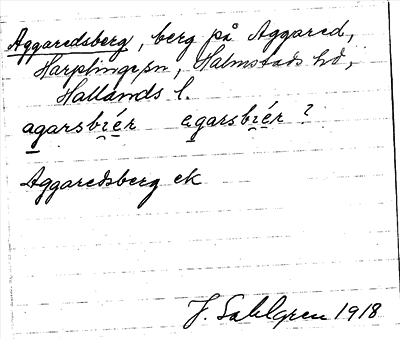 Aggaredsberg, berg på Aggared,
Harplinge sn, Halmstads hd,
Hallands l.
agarsbi̯ér agarsbi̯ér ?
Aggaredsberg ek
J. Sahlgren 1918